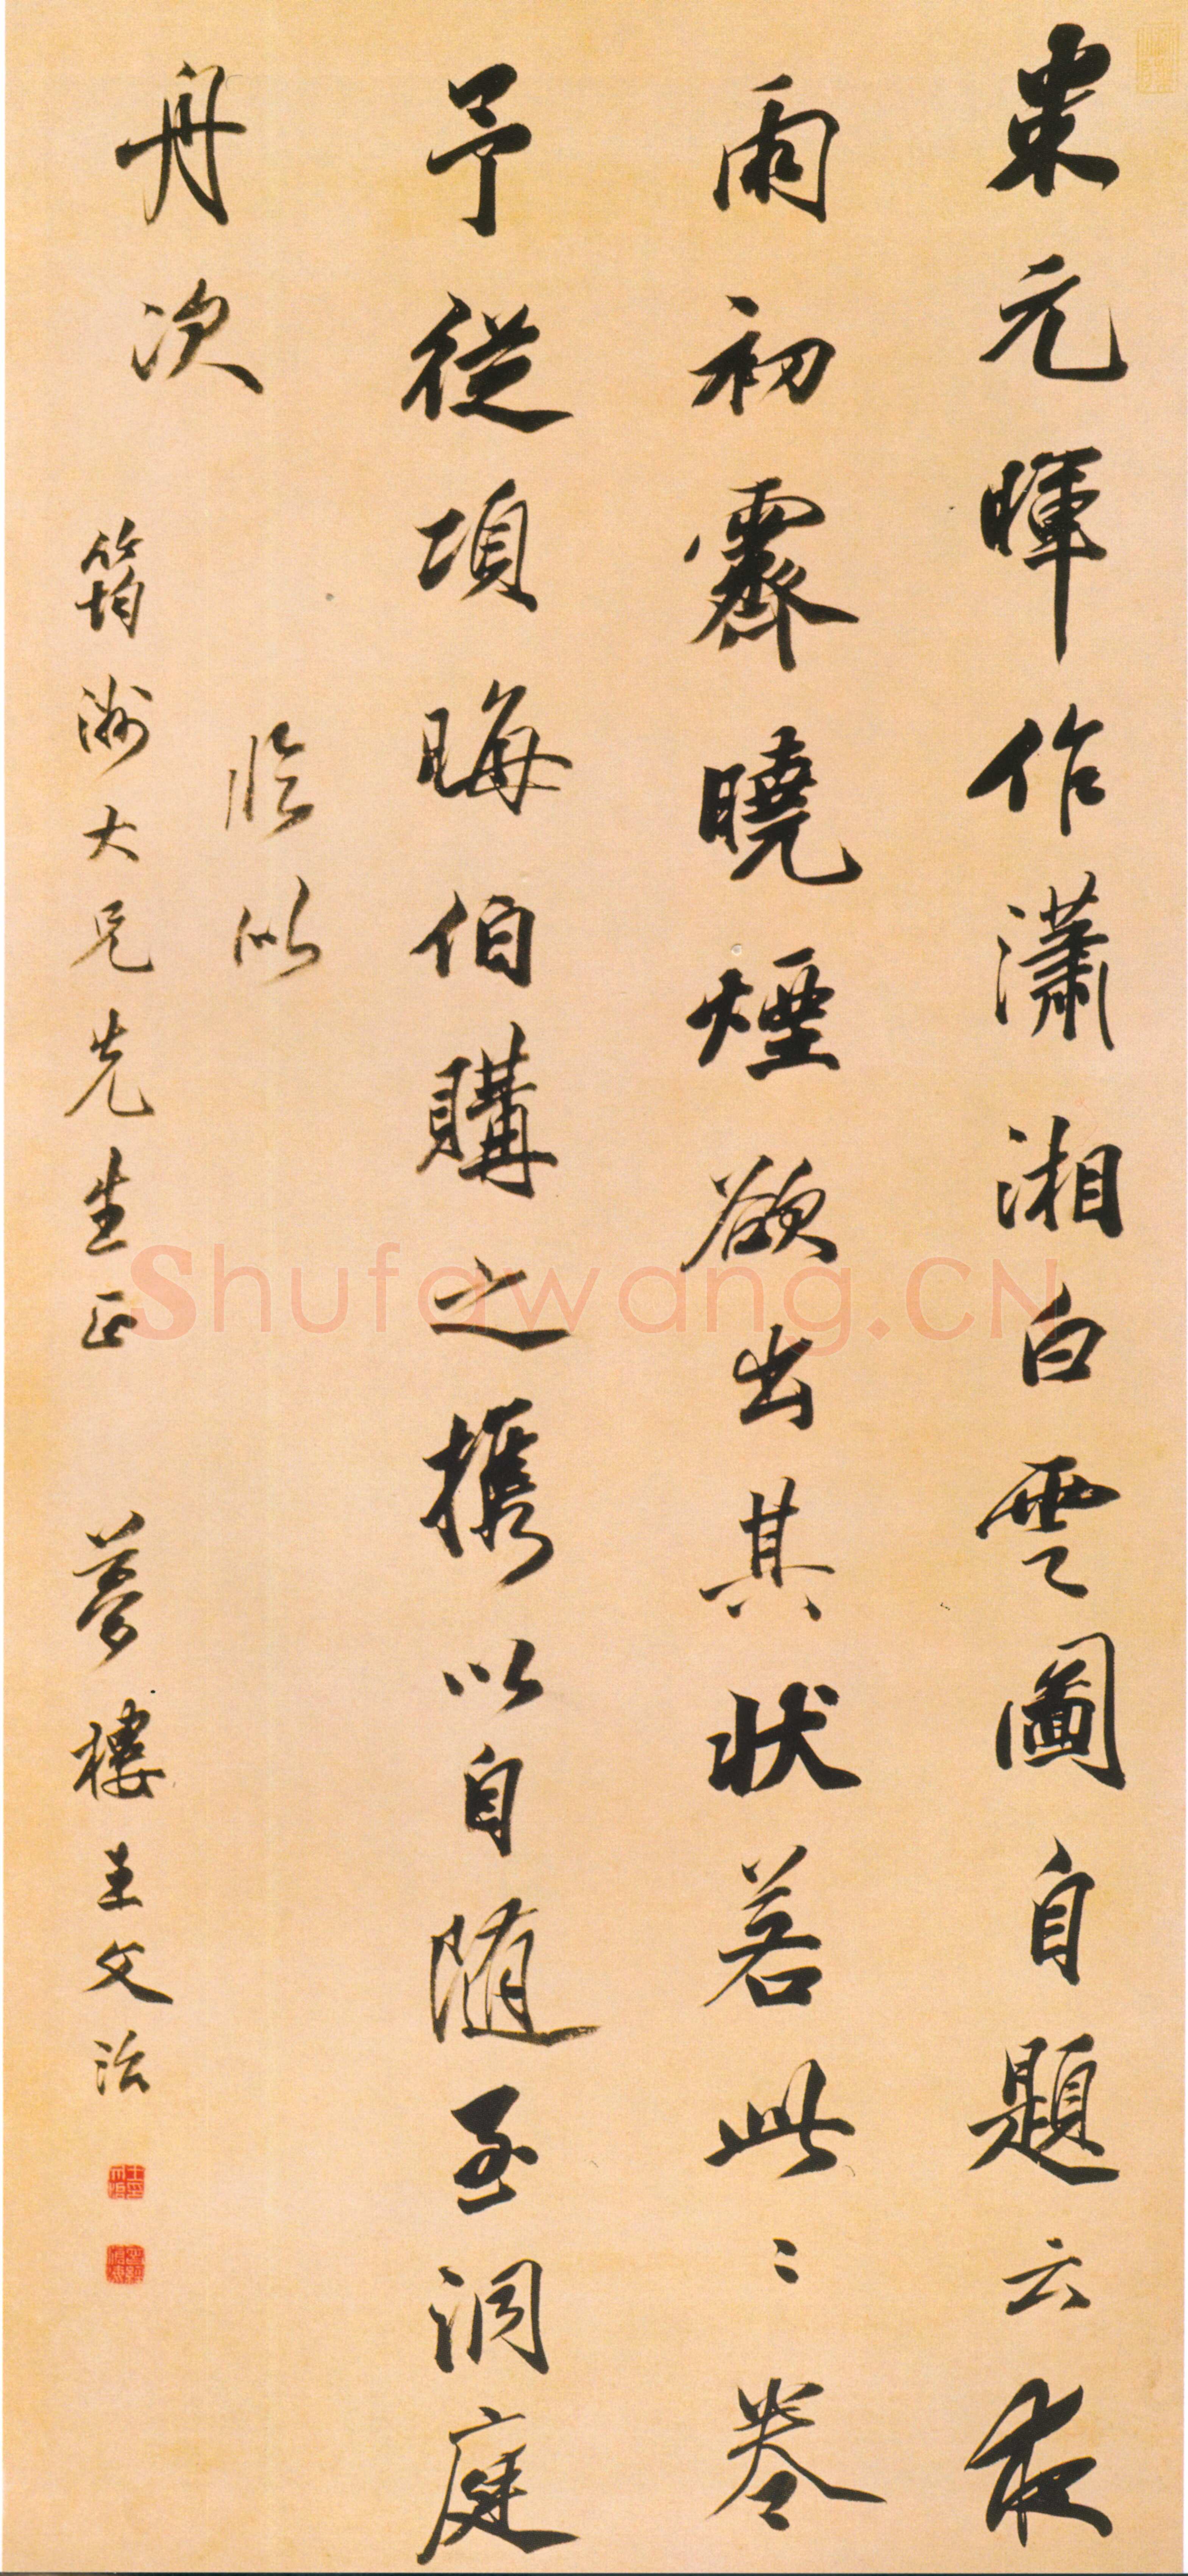 元暉作瀟湘白雲圖自題云夜
雨初霽曉煙欲出其狀若此〻卷
予從項晦伯購之携以自隨至洞庭
舟次
臨以
筠洲大兄先生正 夢樓王文治
Shufawang.CN